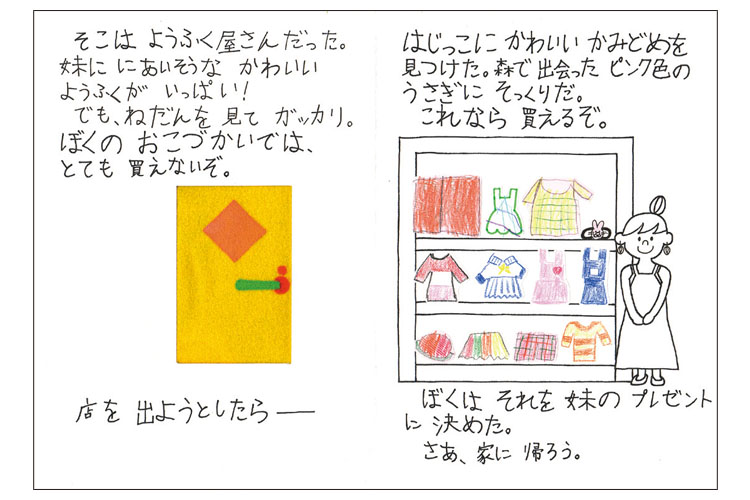 そこは ようふく屋さんだった。
妹に にあいそうな かわいい
ようふくが いっぱい！
でも、ねだんを 見て ガッカリ。
ぼくの おこづかいでは、
とても 買えないぞ。
店を 出ようとしたら──
はじっこに かわいい かみどめを
見つけた。森で出会った ピンク色の
うさぎに そっくりだ。
これなら 買えるぞ。
ぼくは それを 妹の プレゼント
に 決めた。
さあ、家に 帰ろう。